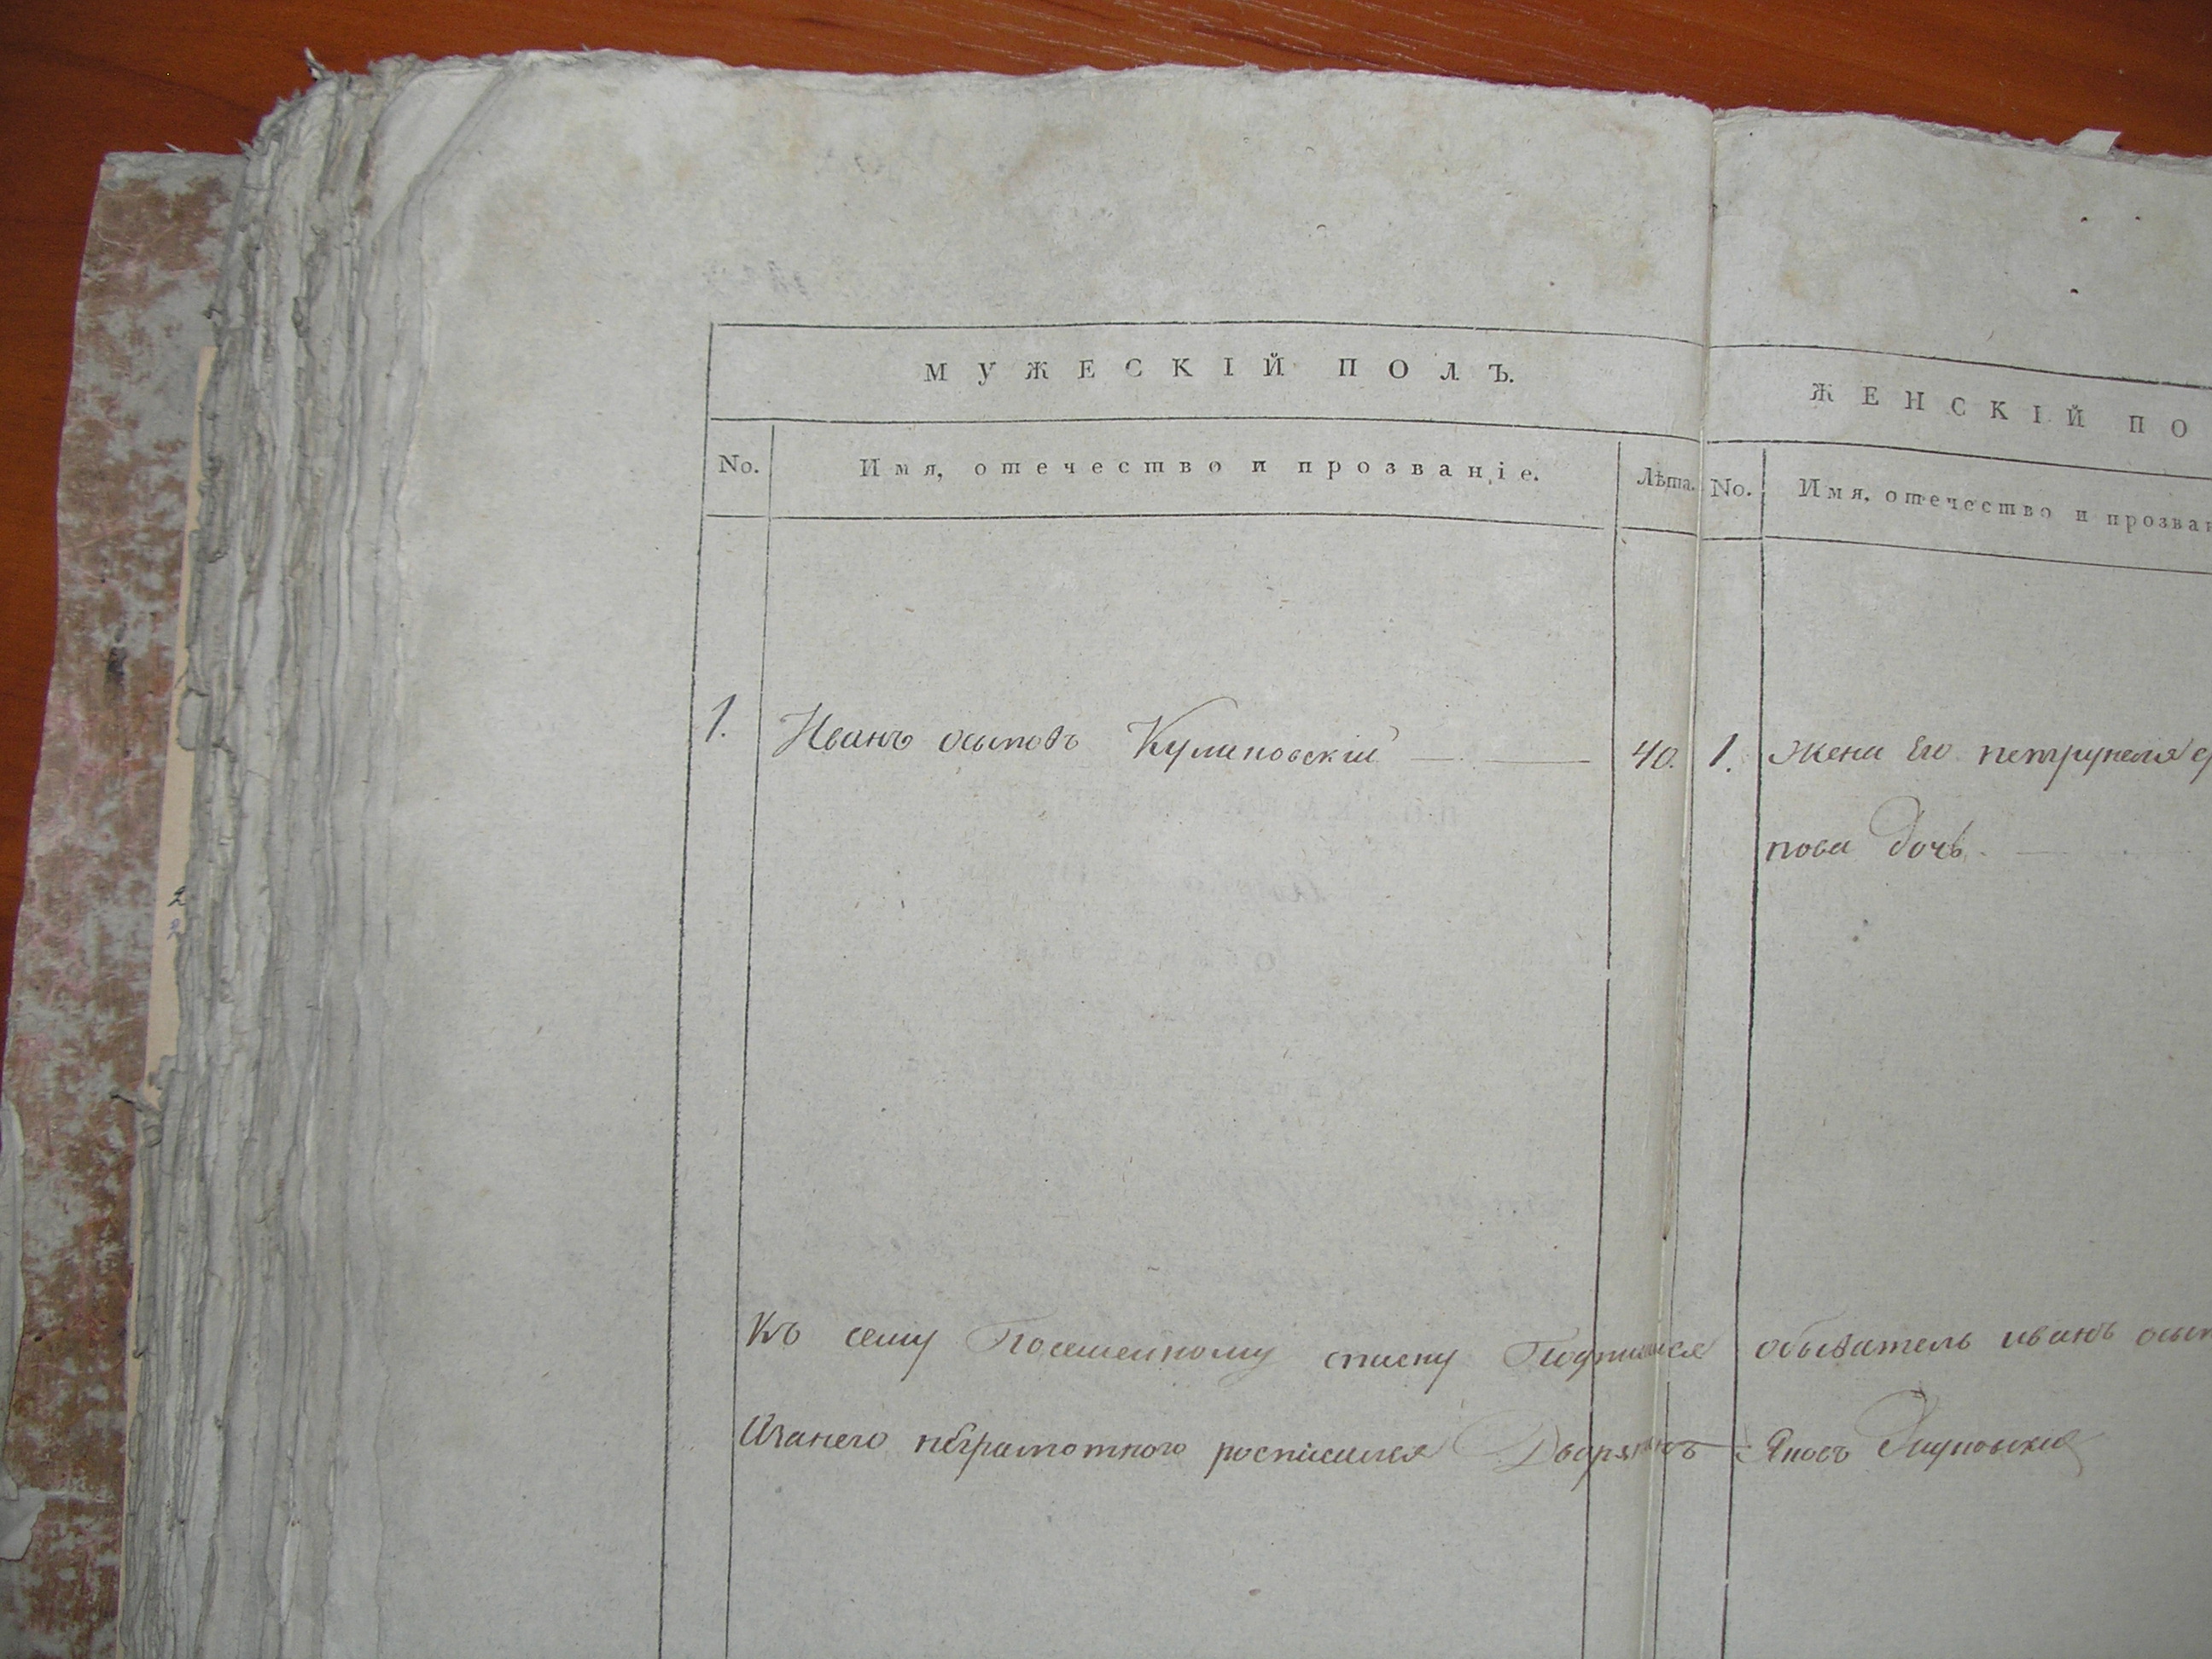 МУЖЕСКІЙ ПОЛЪ.
ЖЕНСКІЙ ПО
No. Имя, отечество и прозваніе. Лѣта.
No. Имя, отечество и прозван
1. Иванъ осыповъ Кулиновскій 40.
1. жена Его петрунеля
пова дочь.
Къ сему Посемейному списку Подписался обыватель иванъ осып
Азанего неграмотного росписался Дворянинъ Яковъ